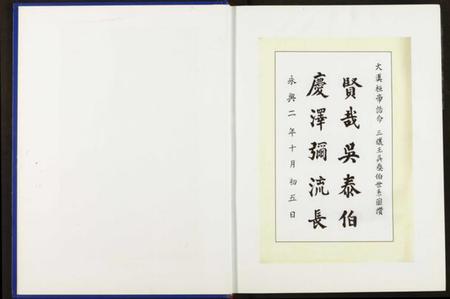 大漢桓帝詔令 三讓王吳泰伯世系圖讚
賢哉吳泰伯
慶澤彌流長
永興二年十月初五日